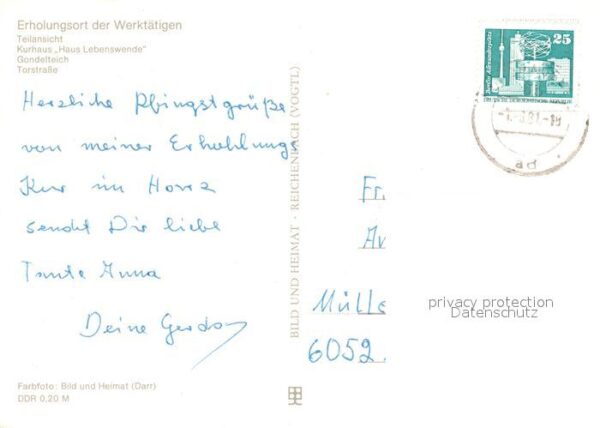 Erholungsort der Werktätigen
Teilansicht
Kurhaus „Haus Lebenswende"
Gondelteich
Torstraße
Herzliche Pfingstgrüße
von meiner Erhohlungs
Kur im Harz
sendet Dir liebe
Tante Anna
Deine Gerda
Farbfoto: Bild und Heimat (Darr)
DDR 0,20 M
BILD UND HEIMAT · REICHENBACH (VOGTL)
25
Berlin, Alexanderplatz
DDR
Fr.
Av
Mülle
6052
privacy protection
Datenschutz